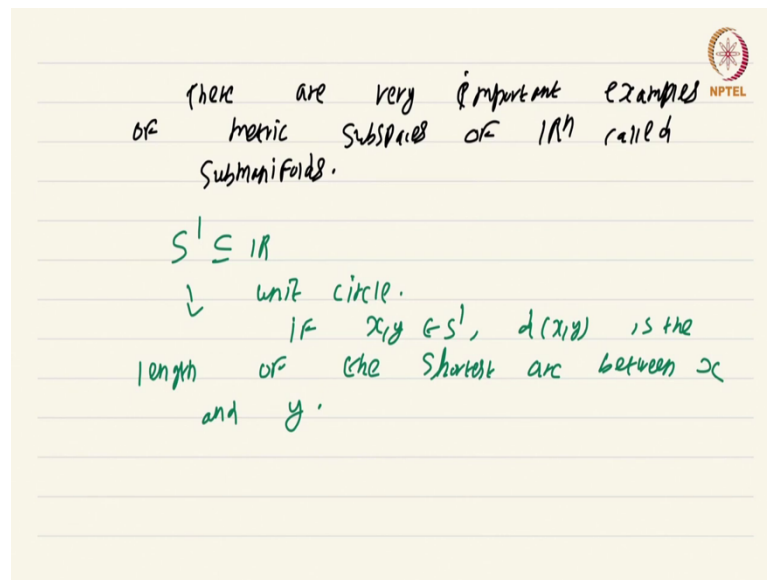 There are very important examples NPTEL
of metric subspaces of IRⁿ called
submanifolds.
S¹ ⊆ IR
↓ unit circle.
if x,y ∈ S¹, d(x,y) is the
length of the shortest arc between x
and y.